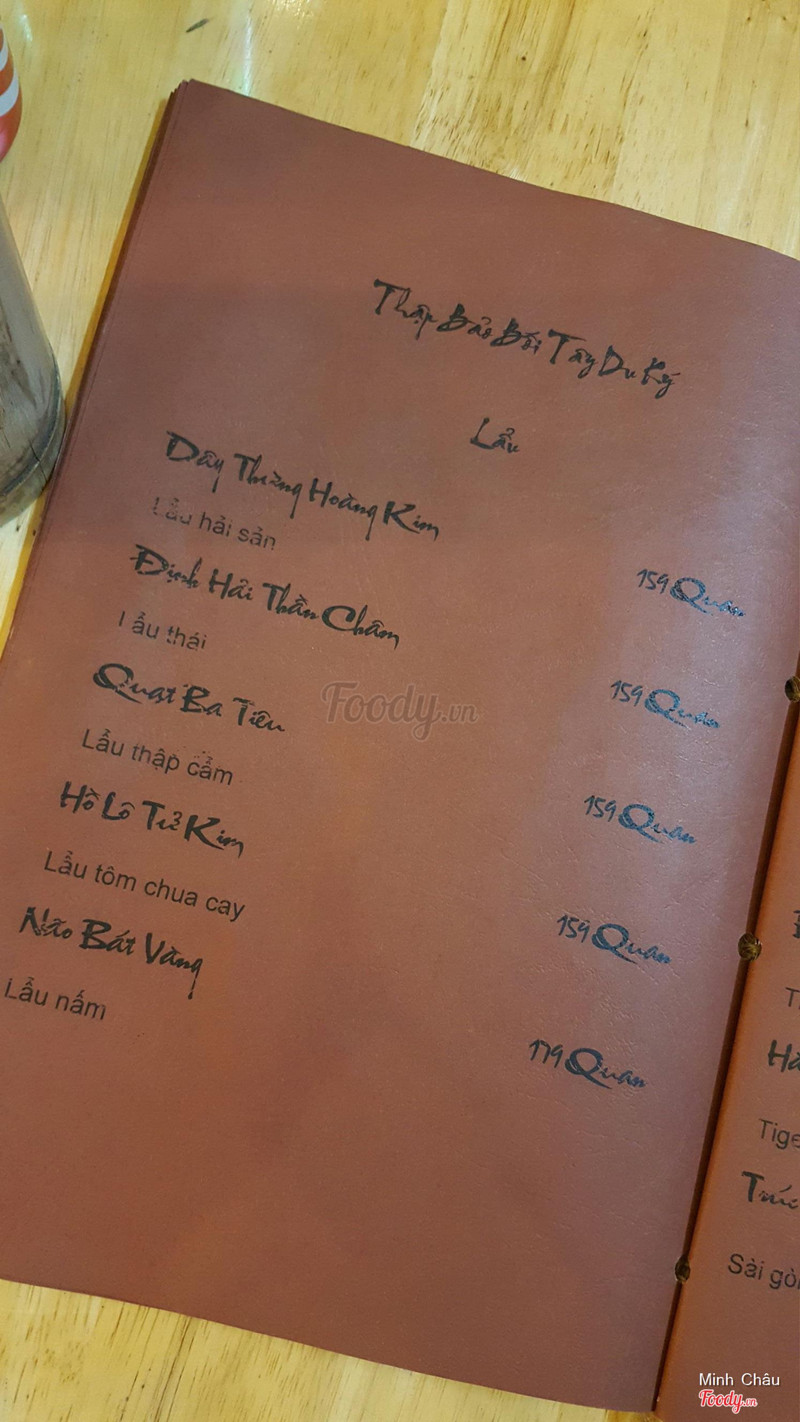 Thập Bảo Bối Tây Du Ký
Lẩu
Dây Thừng Hoàng Kim
Lẩu hải sản
159 Quan
Định Hải Thần Châm
Lẩu thái
159 Quan
Quạt Ba Tiêu
Lẩu thập cẩm
159 Quan
Hồ Lô Tử Kim
Lẩu tôm chua cay
159 Quan
Não Bát Vàng
Lẩu nấm
179 Quan
Foody.vn
Tige
Trúc
Sài gòn
Minh Châu
Foody.vn